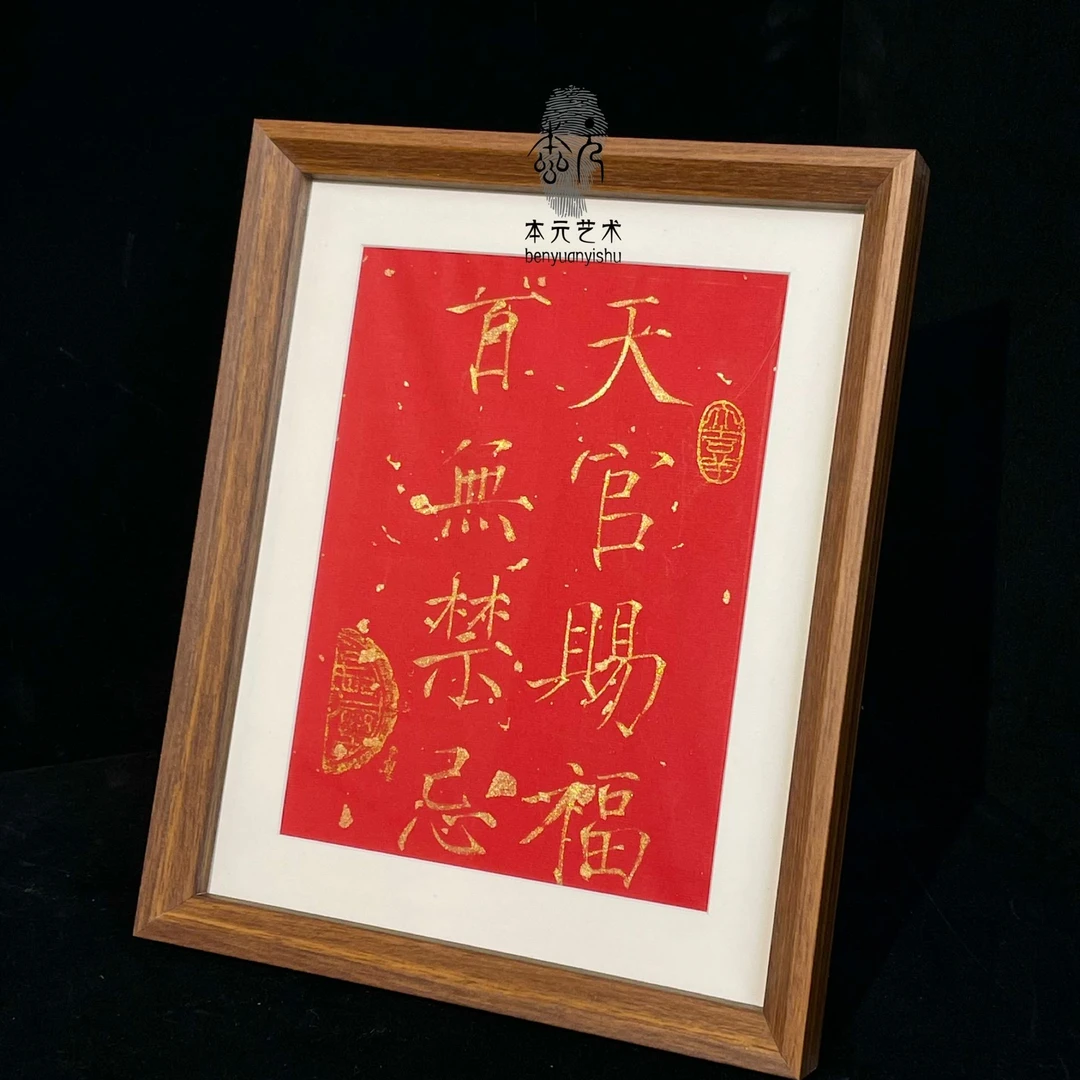 本元艺术
benyuanyishu
天官賜福
百無禁忌